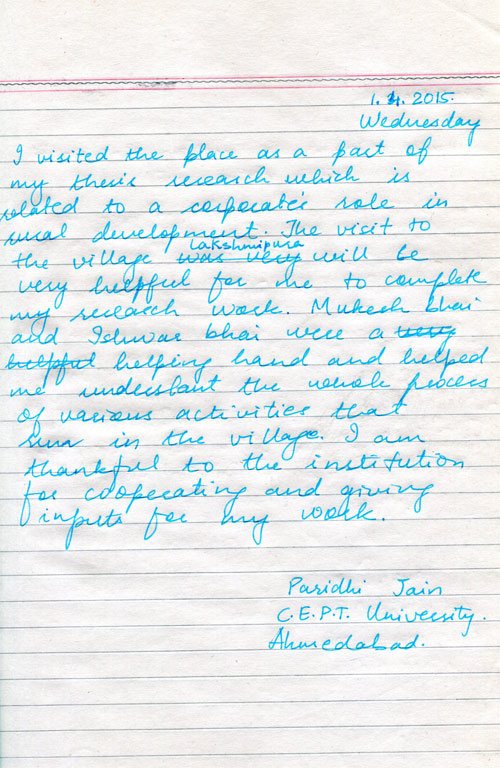 1.4.2015.
Wednesday
I visited the place as a part of
my thesis research which is
related to a corporate's role in
rural development. The visit to
the village Lakshmipura was very will be
very helpful for me to complete
my research work. Mukesh bhai
and Ishwar bhai were a very
helpful helping hand and helped
me understant the whole process
of various activities that
run in the village. I am
thankful to the institution
for cooperating and giving
inputs for my work.
Paridhi Jain
C.E.P.T. University.
Ahmedabad.